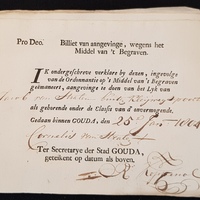 Pro Deo.
Billiet van aangevinge, wegens het
Middel van 't Begraven.
IK ondergeschreve verklare by dezen, ingevolge
van de Ordonnantie op 't Middel van 't Begraven
geëmaneert, aangevinge te doen van het Lyk van
Jacob van
als gehorende onder de Classis van 't onvermogende.
Gedaan binnen GOUDA, den 25
Cornelis van
Ter Secretarye der Stad GOUDA,
geteekent op datum als boven.